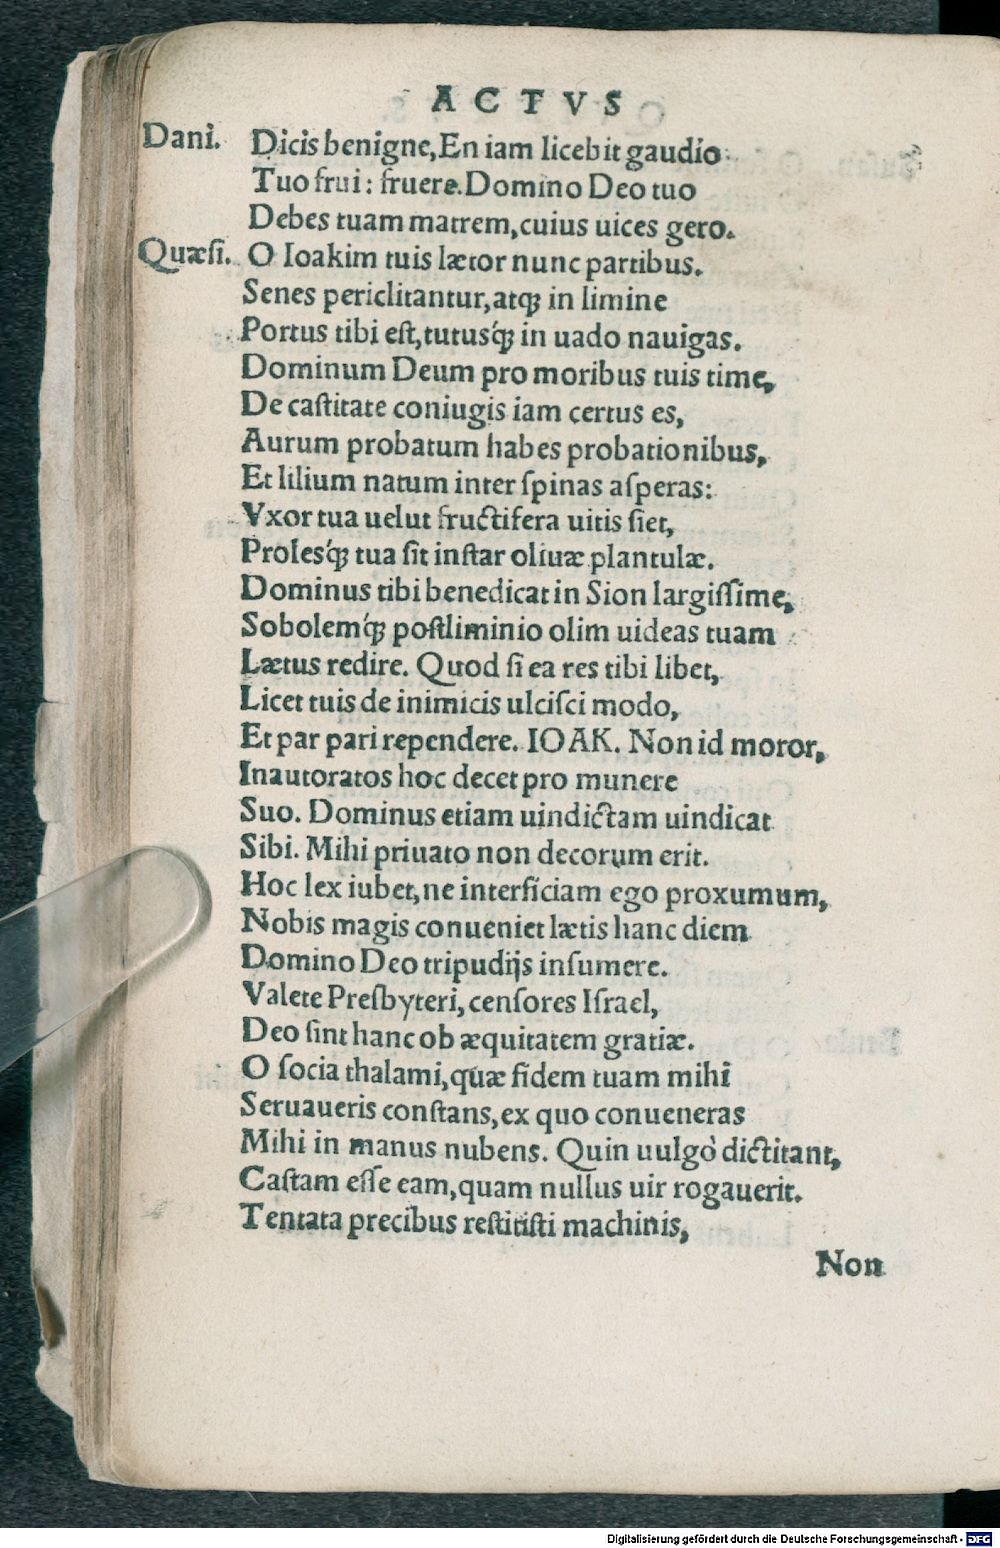 ACTVS
Dani. Dicis benigne, En iam licebit gaudio
Tuo frui: fruere. Domino Deo tuo
Debes tuam matrem, cuius uices gero.
Quæsi. O Ioakim tuis lætor nunc partibus.
Senes periclitantur, atqꝫ in limine
Portus tibi est, tutusq́ꝫ in uado nauigas.
Dominum Deum pro moribus tuis time,
De castitate coniugis iam certus es,
Aurum probatum habes probationibus,
Et lilium natum inter spinas asperas:
Vxor tua uelut fructifera uitis siet,
Prolesq́ꝫ tua sit instar oliuæ plantulæ.
Dominus tibi benedicat in Sion largissime,
Sobolemq́ꝫ postliminio olim uideas tuam
Lætus redire. Quod si ea res tibi libet,
Licet tuis de inimicis ulcisci modo,
Et par pari rependere. IOAK. Non id moror,
Inautoratos hoc decet pro munere
Suo. Dominus etiam uindictam uindicat
Sibi. Mihi priuato non decorum erit.
Hoc lex iubet, ne interficiam ego proxumum,
Nobis magis conueniet lætis hanc diem
Domino Deo tripudijs insumere.
Valete Presbyteri, censores Israel,
Deo sint hanc ob æquitatem gratiæ.
O socia thalami, quæ fidem tuam mihi
Seruaueris constans, ex quo conueneras
Mihi in manus nubens. Quin uulgò dictitant,
Castam esse eam, quam nullus uir rogauerit.
Tentata precibus restitisti machinis,
Non
Digitalisierung gefördert durch die Deutsche Forschungsgemeinschaft - DFG